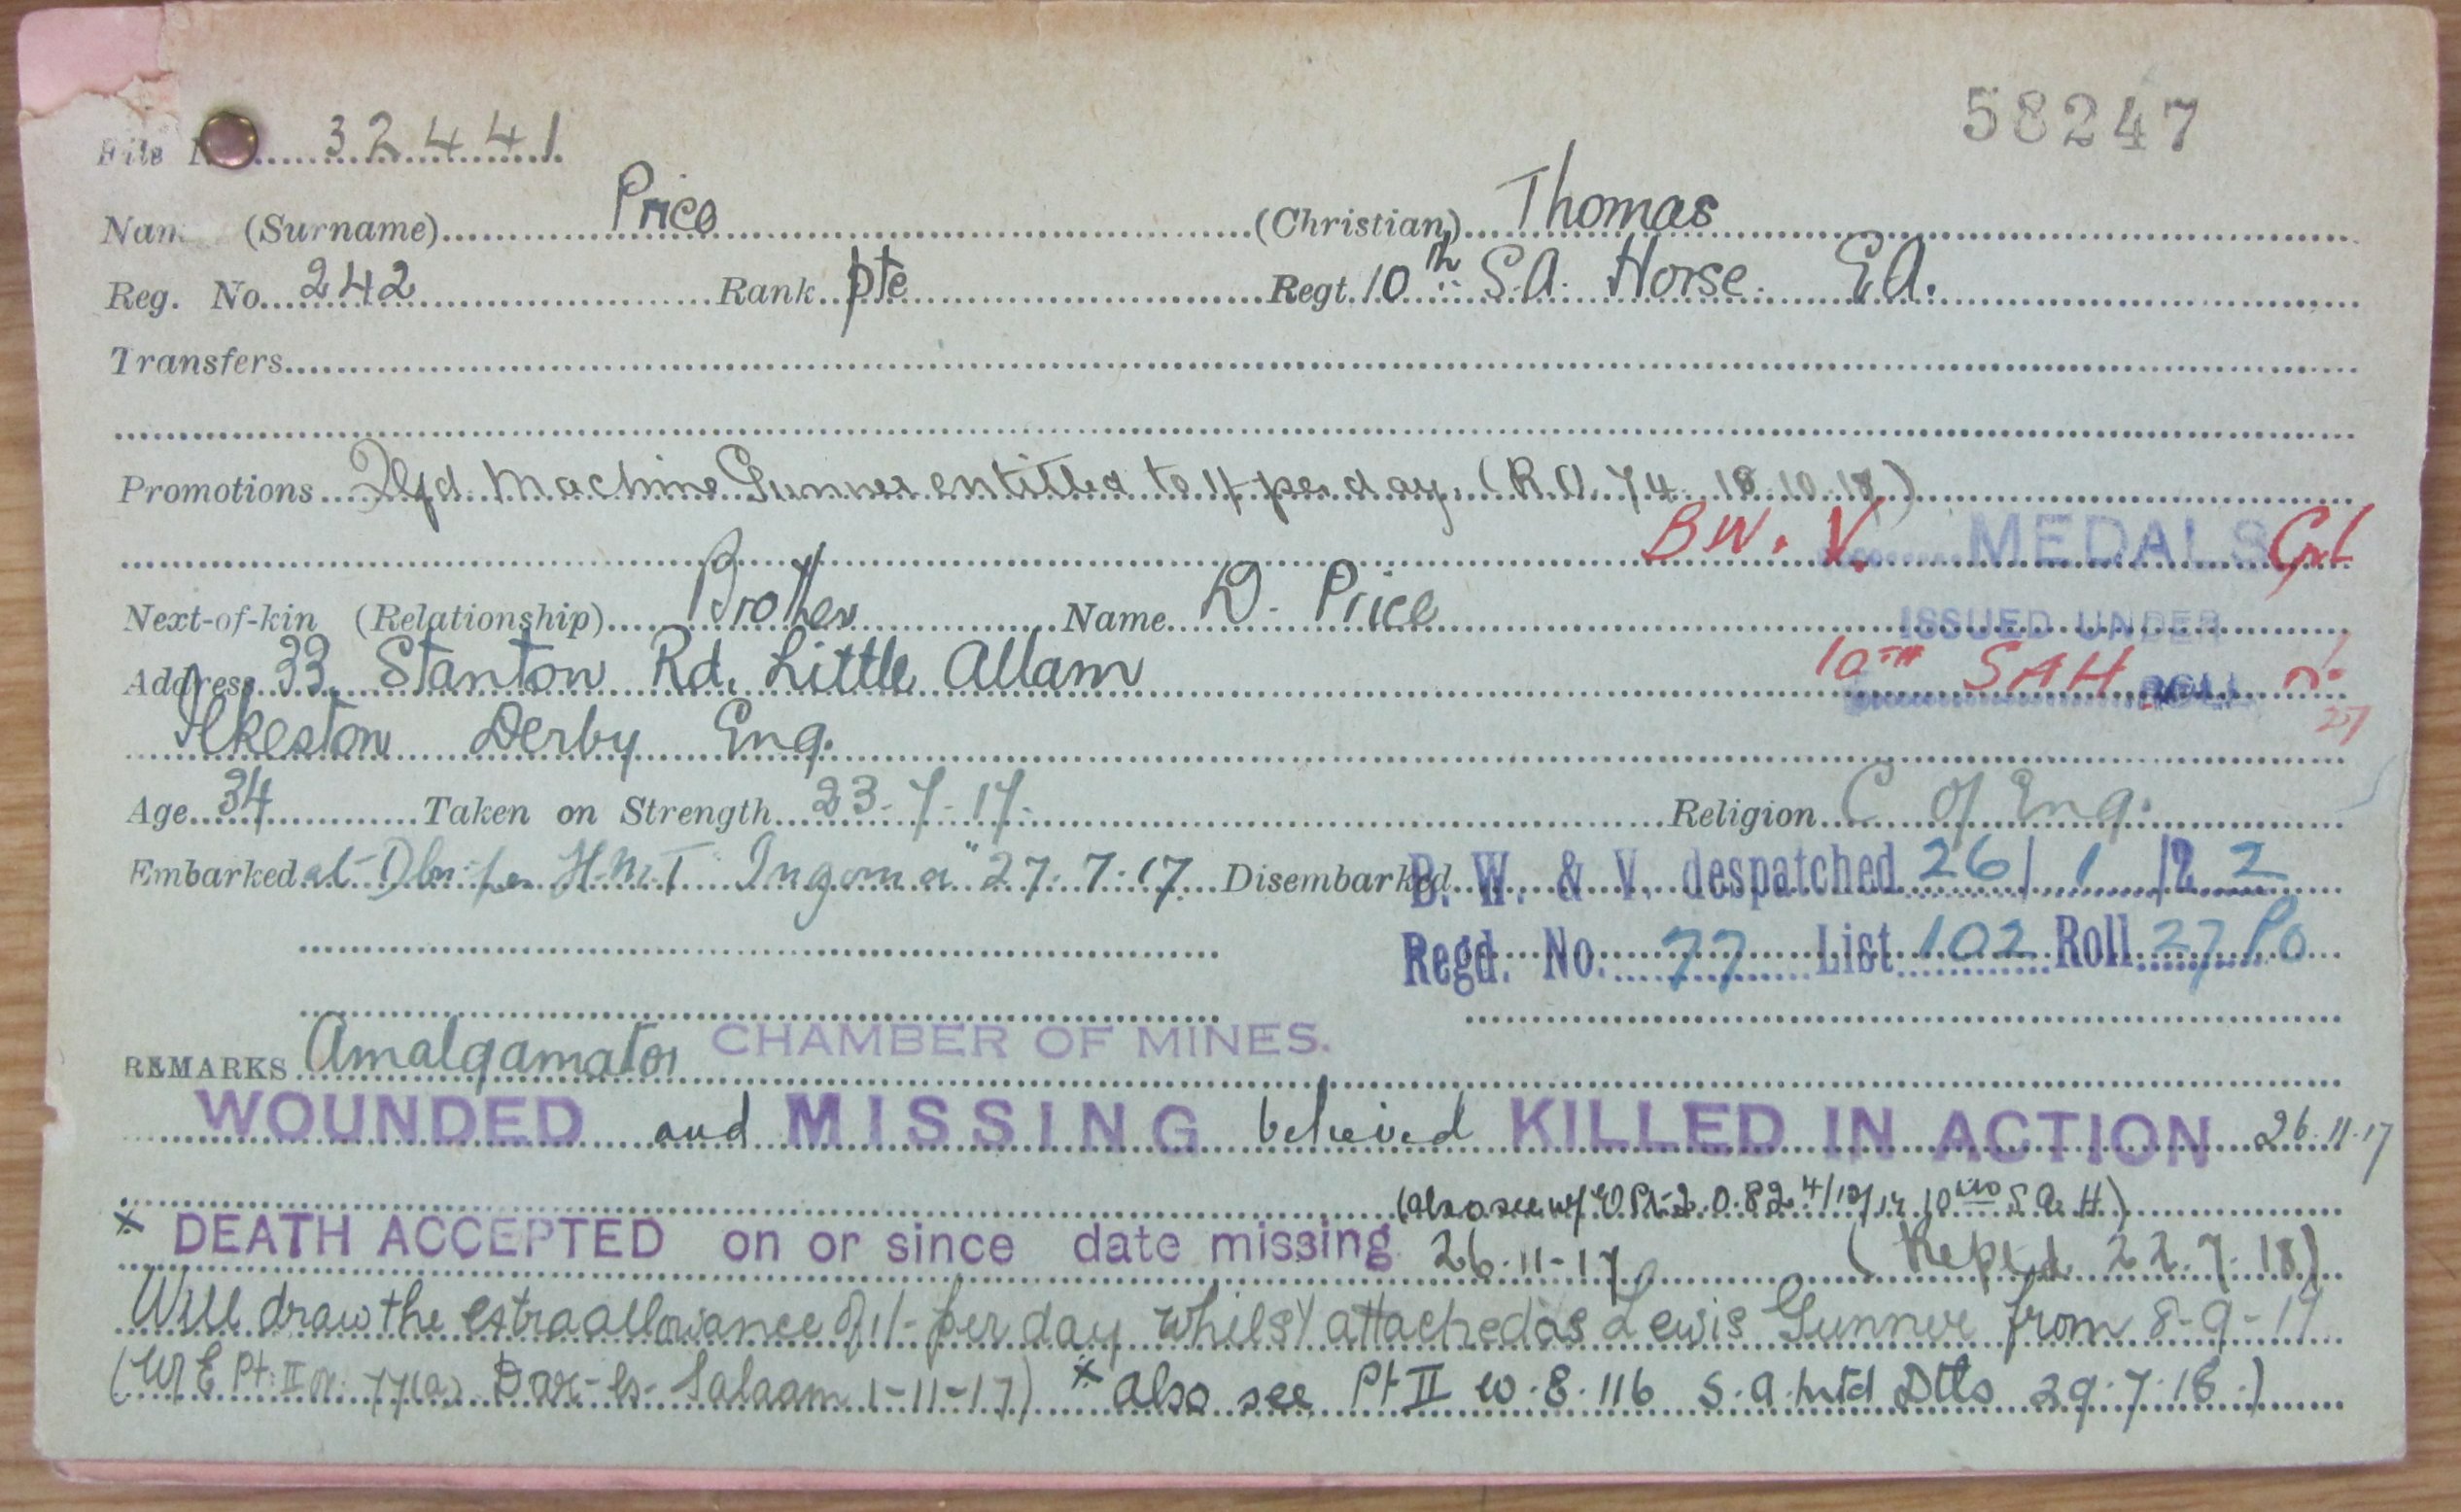 58247
File 32441
(Surname) Price (Christian) Thomas
Reg. No. 242 Rank pte Regt. 10th S.A. Horse. E.A.
Transfers
Promotions Qlfd. Machine Gunner entitled to 1/- per day. (R.O. 74
BW. V. MEDALS
Next-of-kin (Relationship) Brother Name D. Price
ISSUED UNDER
Address 33, Stanton Rd, Little Allam
10TH SAH ROLL
27
Ilkeston Derby Eng.
Age 34 Taken on Strength 23-7-17. Religion C of Eng.
Embarked at Dbn per H.M.T. Ingoma" 27.7.17 Disembarked B. W. & V. despatched 26/1/22
Regd. No. 77 List 102 Roll 27 Po
REMARKS Amalgamator CHAMBER OF MINES.
WOUNDED and MISSING believed KILLED IN ACTION 26.11.17
(also see 0.82 4/12/17 10th S.A.H)
x DEATH ACCEPTED on or since date missing 26-11-17 (Reptd 22.7.18)
Will draw the extra allowance of 1/- per day whilst attached as Lewis Gunner from 8-9-17
(W E Pt. II Or. 77(a) Dar-es-Salaam 1-11-17) x also see Pt II 116 S.A. Mtd Dtls 29.7.18.)